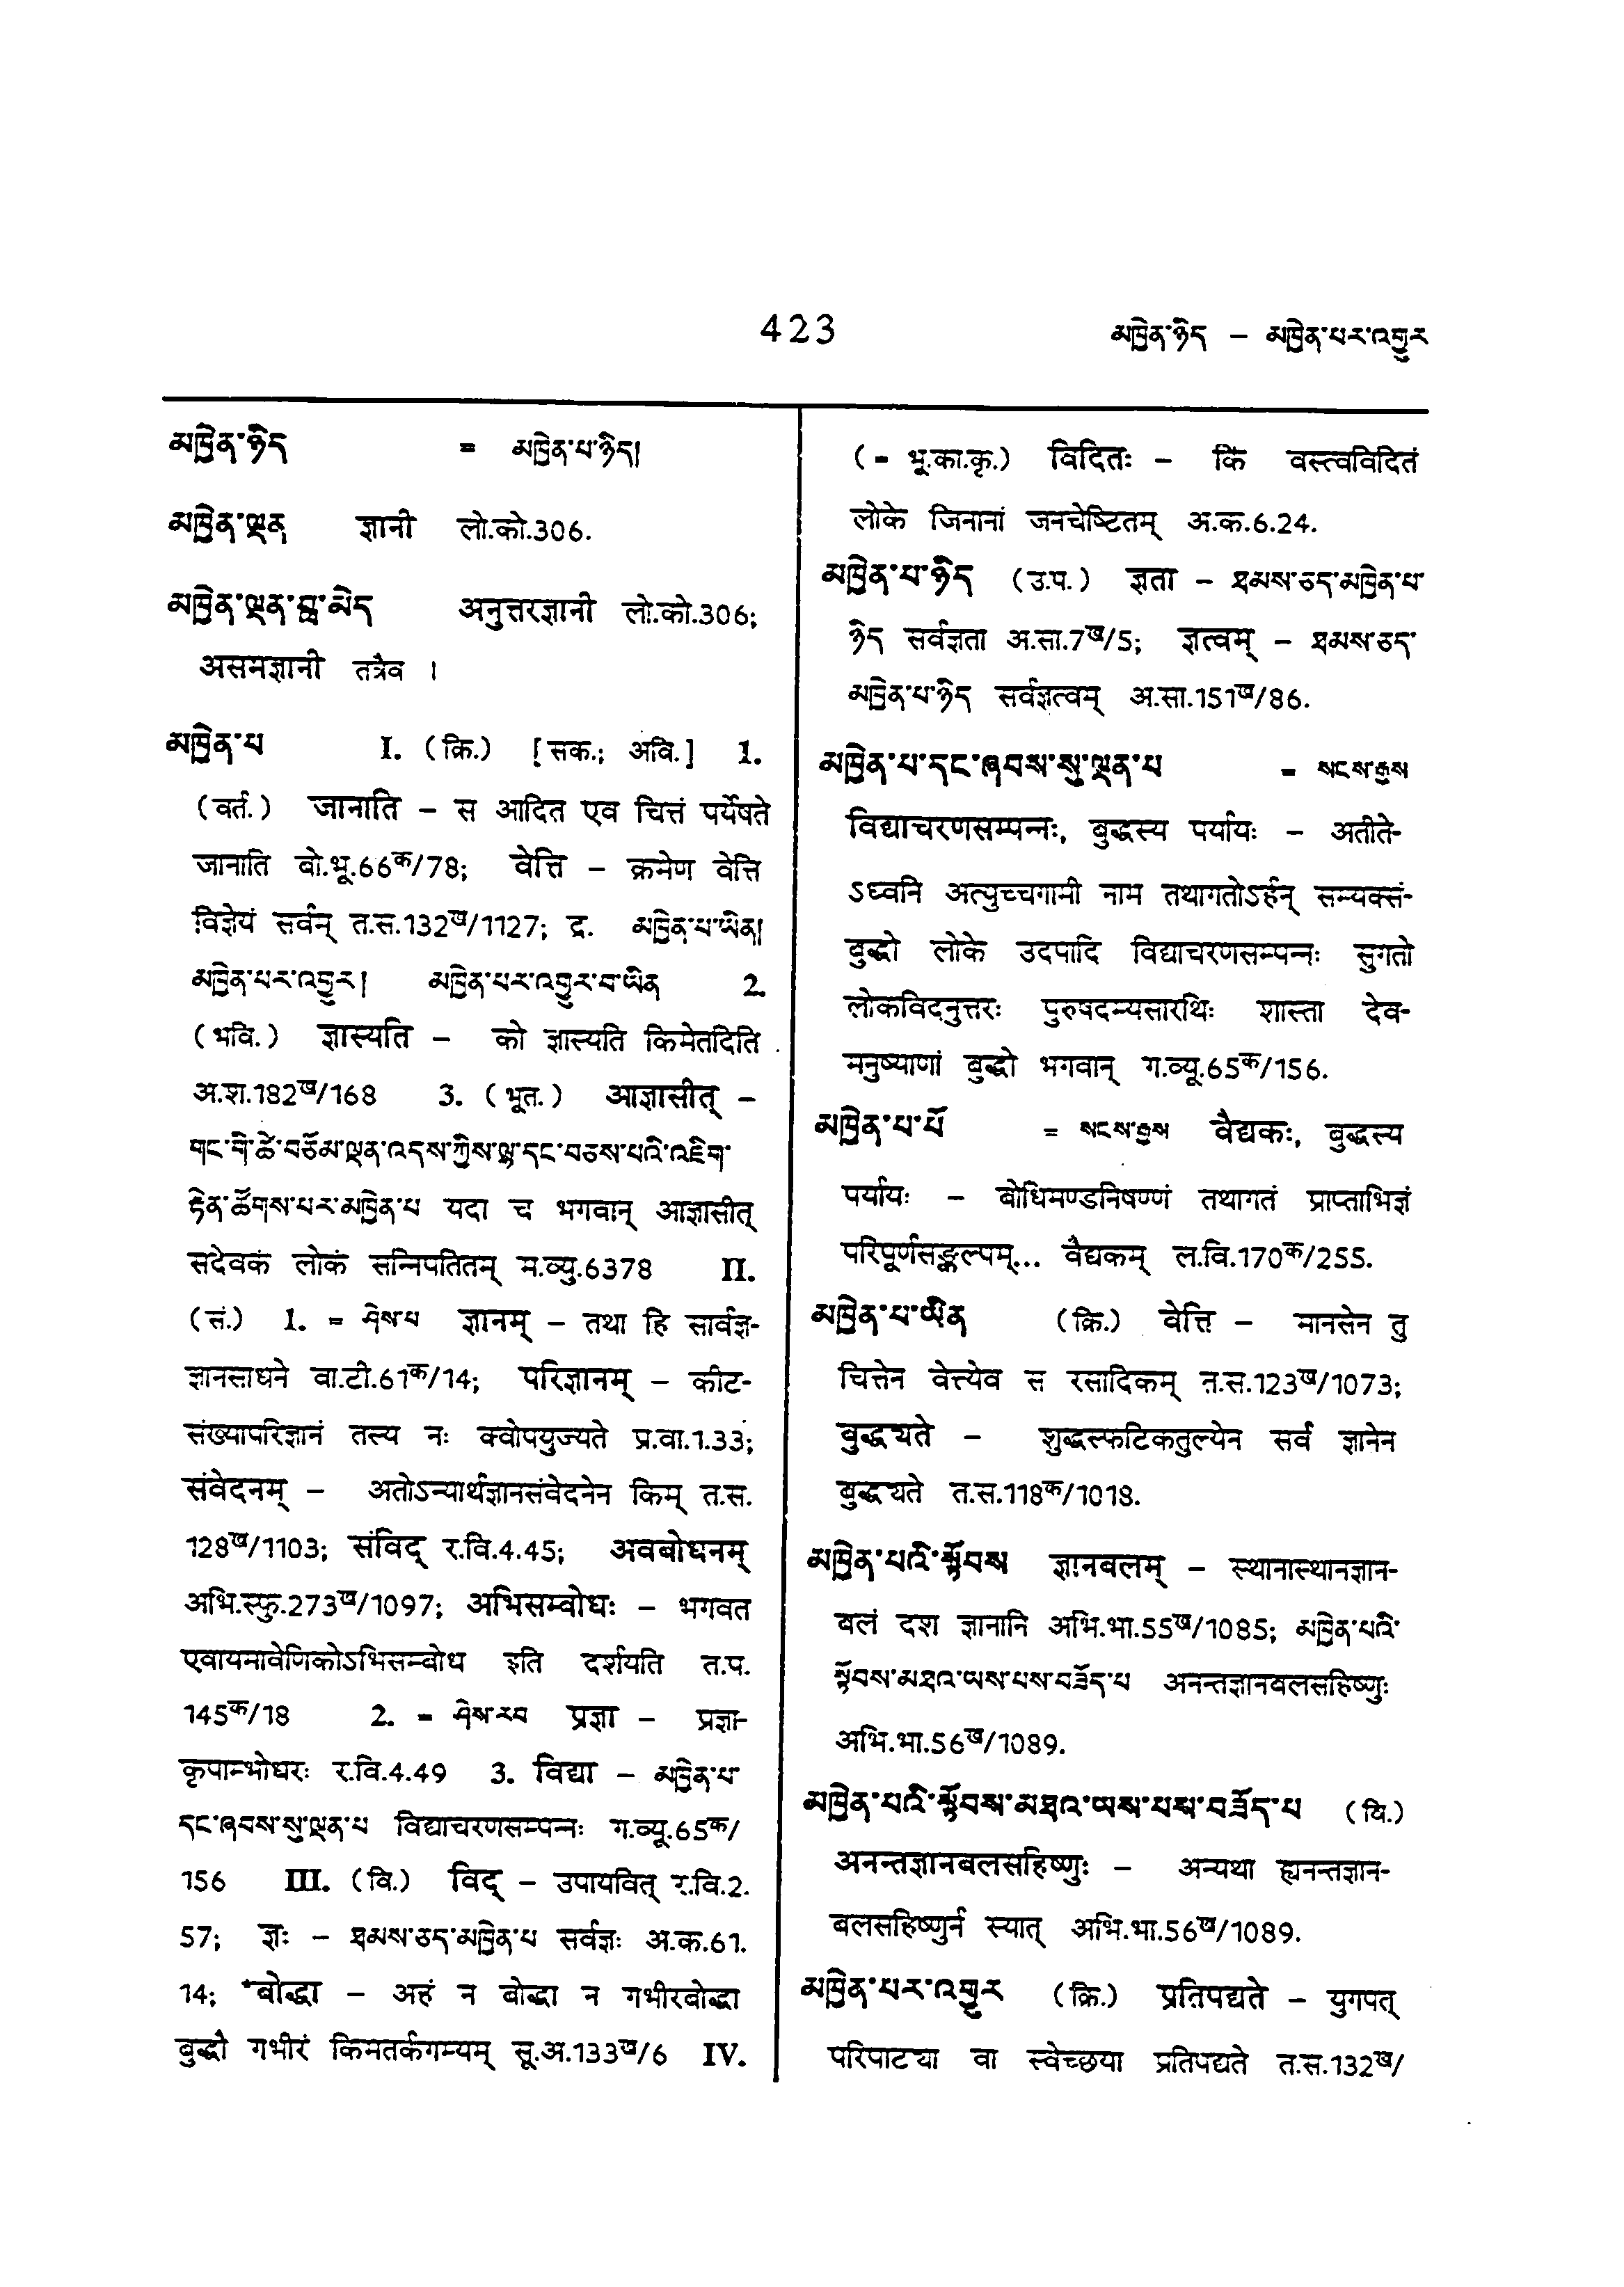 423
མཁྱེན་ཉིད – མཁྱེན་པར་འགྱུར
མཁྱེན་ཉིད = མཁྱེན་པ་ཉིད།
མཁྱེན་ལྡན ज्ञानी लो.को.306.
མཁྱེན་ལྡན་བླ་མེད अनुत्तरज्ञानी लो.को.306;
असमज्ञानी तत्रैव ।
མཁྱེན་པ I. (क्रि.) [सक.; अवि.] 1.
(वर्त.) जानाति – स आदित एव चित्तं पर्येषते
जानाति बो.भू.66क/78; वेत्ति – क्रमेण वेत्ति
विज्ञेयं सर्वम् त.स.132ख/1127; द्र. མཁྱེན་པ་ཡིན།
མཁྱེན་པར་འགྱུར། མཁྱེན་པར་འགྱུར་བ་ཡིན 2.
(भवि.) ज्ञास्यति – को ज्ञास्यति किमेतदिति
अ.श.182ख/168 3. (भूत.) आज्ञासीत् –
གང་གི་ཚེ་བཅོམ་ལྡན་འདས་ཀྱིས་ལྷ་དང་བཅས་པའི་འཇིག་
རྟེན་ཚོགས་པར་མཁྱེན་པ यदा च भगवान् आज्ञासीत्
सदेवकं लोकं सन्निपतितम् म.व्यु.6378 II.
(सं.) 1. = ཤེས་པ ज्ञानम् – तथा हि सार्वज्ञ-
ज्ञानसाधने वा.टी.61क/14; परिज्ञानम् – कीट-
संख्यापरिज्ञानं तस्य नः क्वोपयुज्यते प्र.वा.1.33;
संवेदनम् – अतोऽन्यार्थज्ञानसंवेदनेन किम् त.स.
128ख/1103; संविद् र.वि.4.45; अवबोधनम्
अभि.स्फु.273ख/1097; अभिसम्बोधः – भगवत
एवायमावेणिकोऽभिसम्बोध इति दर्शयति त.प.
145क/18 2. = ཤེས་རབ प्रज्ञा – प्रज्ञा-
कृपाम्भोधरः र.वि.4.49 3. विद्या – མཁྱེན་པ་
དང་ཞབས་སུ་ལྡན་པ विद्याचरणसम्पन्नः ग.व्यू.65क/
156 III. (वि.) विद् – उपायवित् र.वि.2.
57; ज्ञः – ཐམས་ཅད་མཁྱེན་པ सर्वज्ञः अ.क.61.
14; *बोद्धा – अहं न बोद्धा न गभीरबोद्धा
बुद्धो गभीरं किमतर्कगम्यम् सू.अ.133ख/6 IV.
(= भू.का.कृ.) विदितः – किं वस्त्वविदितं
लोके जिनानां जनचेष्टितम् अ.क.6.24.
མཁྱེན་པ་ཉིད (उ.प.) ज्ञता – ཐམས་ཅད་མཁྱེན་པ་
ཉིད सर्वज्ञता अ.सा.7ख/5; ज्ञत्वम् – ཐམས་ཅད་
མཁྱེན་པ་ཉིད सर्वज्ञत्वम् अ.सा.151ख/86.
མཁྱེན་པ་དང་ཞབས་སུ་ལྡན་པ = སངས་རྒྱས
विद्याचरणसम्पन्नः, बुद्धस्य पर्यायः – अतीते-
ऽध्वनि अत्युच्चगामी नाम तथागतोऽर्हन् सम्यक्सं-
बुद्धो लोके उदपादि विद्याचरणसम्पन्नः सुगतो
लोकविदनुत्तरः पुरुषदम्यसारथिः शास्ता देव-
मनुष्याणां बुद्धो भगवान् ग.व्यू.65क/156.
མཁྱེན་པ་པོ = སངས་རྒྱས वैद्यकः, बुद्धस्य
पर्यायः – बोधिमण्डनिषण्णं तथागतं प्राप्ताभिज्ञं
परिपूर्णसङ्कल्पम्... वैद्यकम् ल.वि.170क/255.
མཁྱེན་པ་ཡིན (क्रि.) वेत्ति – मानसेन तु
चित्तेन वेत्त्येव स रसादिकम् त.स.123ख/1073;
बुद्ध्यते – शुद्धस्फटिकतुल्येन सर्वं ज्ञानेन
बुद्ध्यते त.स.118क/1018.
མཁྱེན་པའི་སྟོབས ज्ञानबलम् – स्थानास्थानज्ञान-
बलं दश ज्ञानानि अभि.भा.55ख/1085; མཁྱེན་པའི་
སྟོབས་མཐའ་ཡས་པས་བཟོད་པ अनन्तज्ञानबलसहिष्णुः
अभि.भा.56ख/1089.
མཁྱེན་པའི་སྟོབས་མཐའ་ཡས་པས་བཟོད་པ (वि.)
अनन्तज्ञानबलसहिष्णुः – अन्यथा ह्यनन्तज्ञान-
बलसहिष्णुर्न स्यात् अभि.भा.56ख/1089.
མཁྱེན་པར་འགྱུར (क्रि.) प्रतिपद्यते – युगपत्
परिपाट्या वा स्वेच्छया प्रतिपद्यते त.स.132ख/